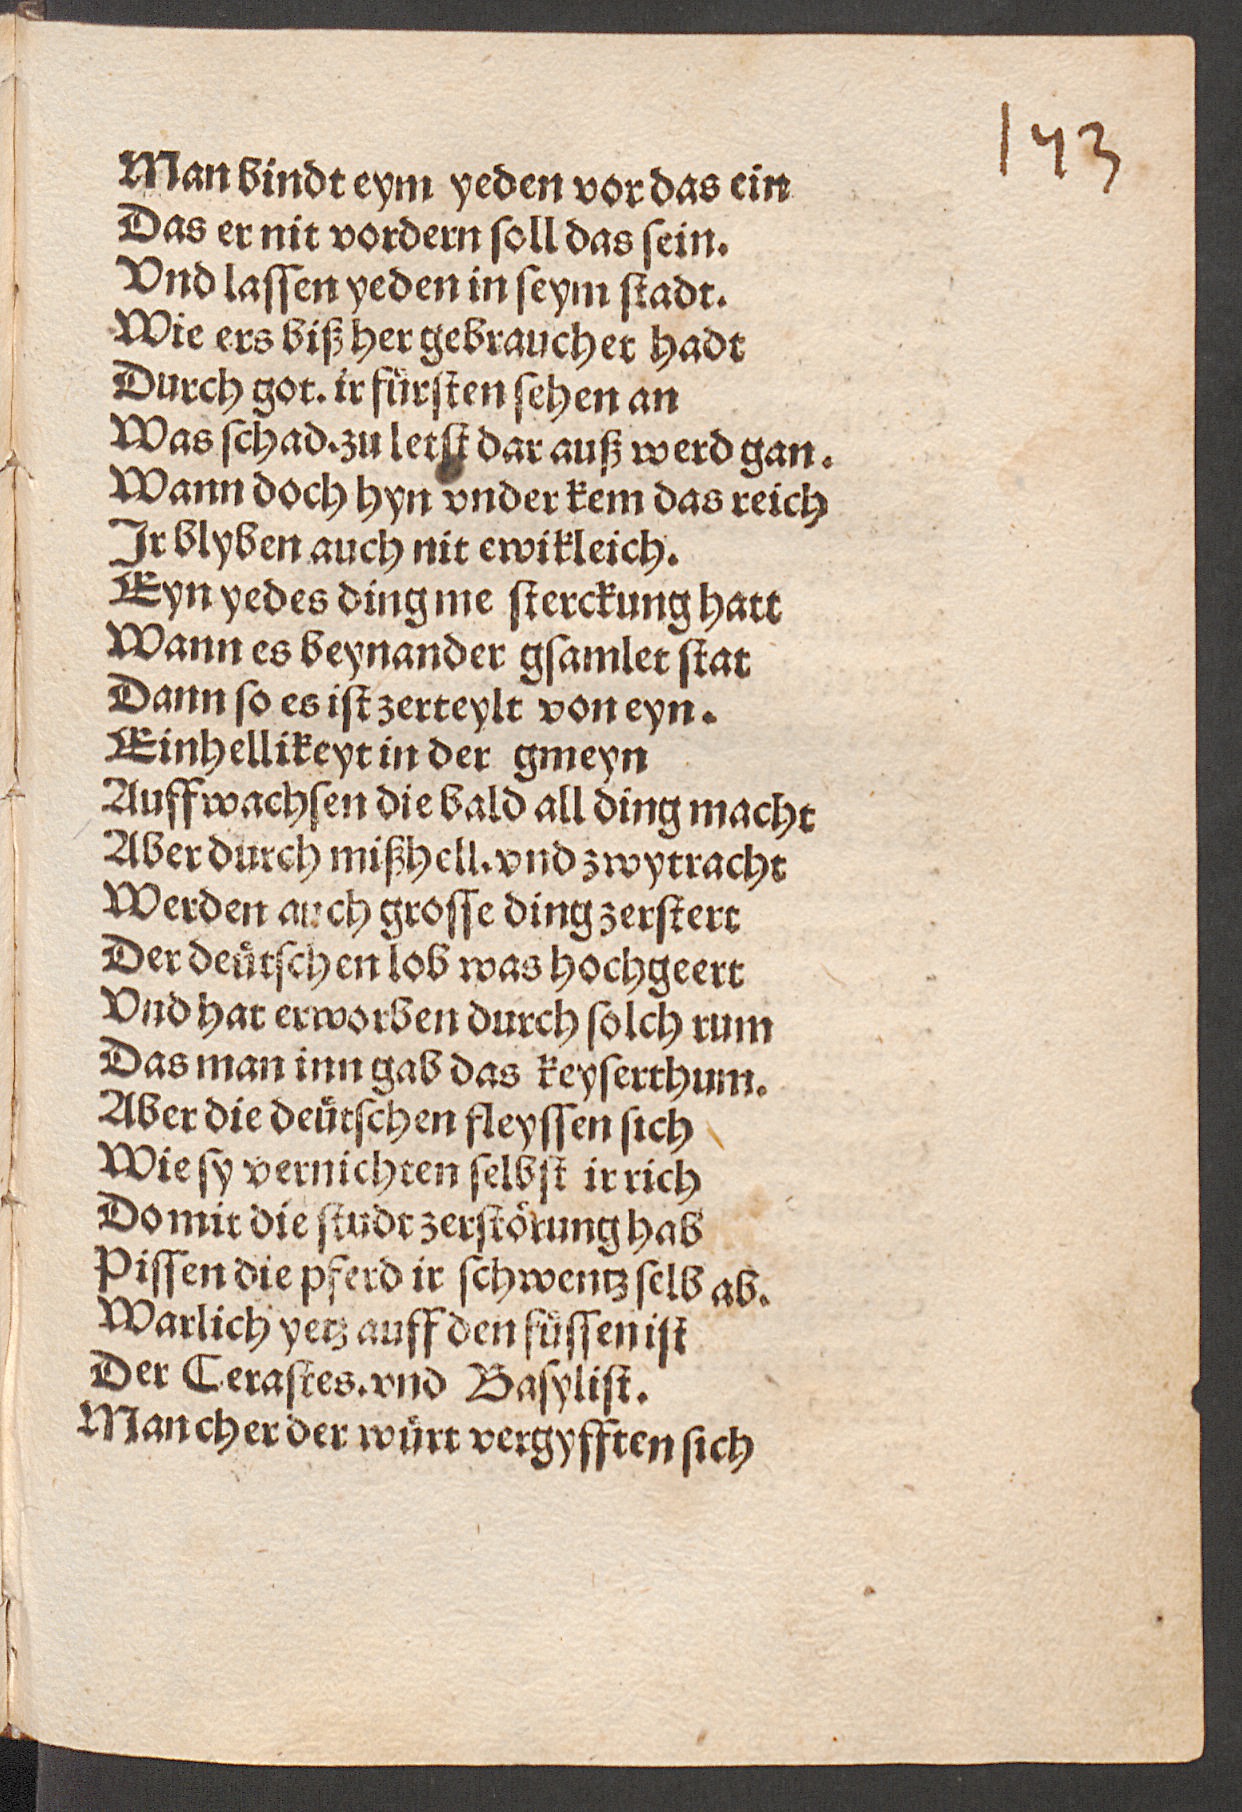 143
Man bindt eym yeden vor das ein
Das er nit vordern soll das sein.
Vnd lassen yeden in seym stadt.
Wie ers biß her gebrauchet hadt
Durch got. ir fürsten sehen an
Was schad. zu letst dar auß werd gan.
Wann doch hyn vnder kem das reich
Ir blyben auch nit ewikleich.
Eyn yedes ding me sterckung hatt
Wann es beynander gsamlet stat
Dann so es ist zerteylt von eyn.
Einhellikeyt in der gmeyn
Auffwachsen die bald all ding macht
Aber durch mißhell. vnd zwytracht
Werden auch grosse ding zerstert
Der deütschen lob was hochgeert
Vnd hat erworben durch solch rum
Das man inn gab das keyserthum.
Aber die deütschen fleyssen sich
Wie sy vernichten selbst ir rich
Domit die studt zerstörung hab
Pissen die pferd ir schwentz selb ab.
Warlich yetz auff den füssen ist
Der Cerastes. vnd Basylist.
Mancher der würt vergyfften sich